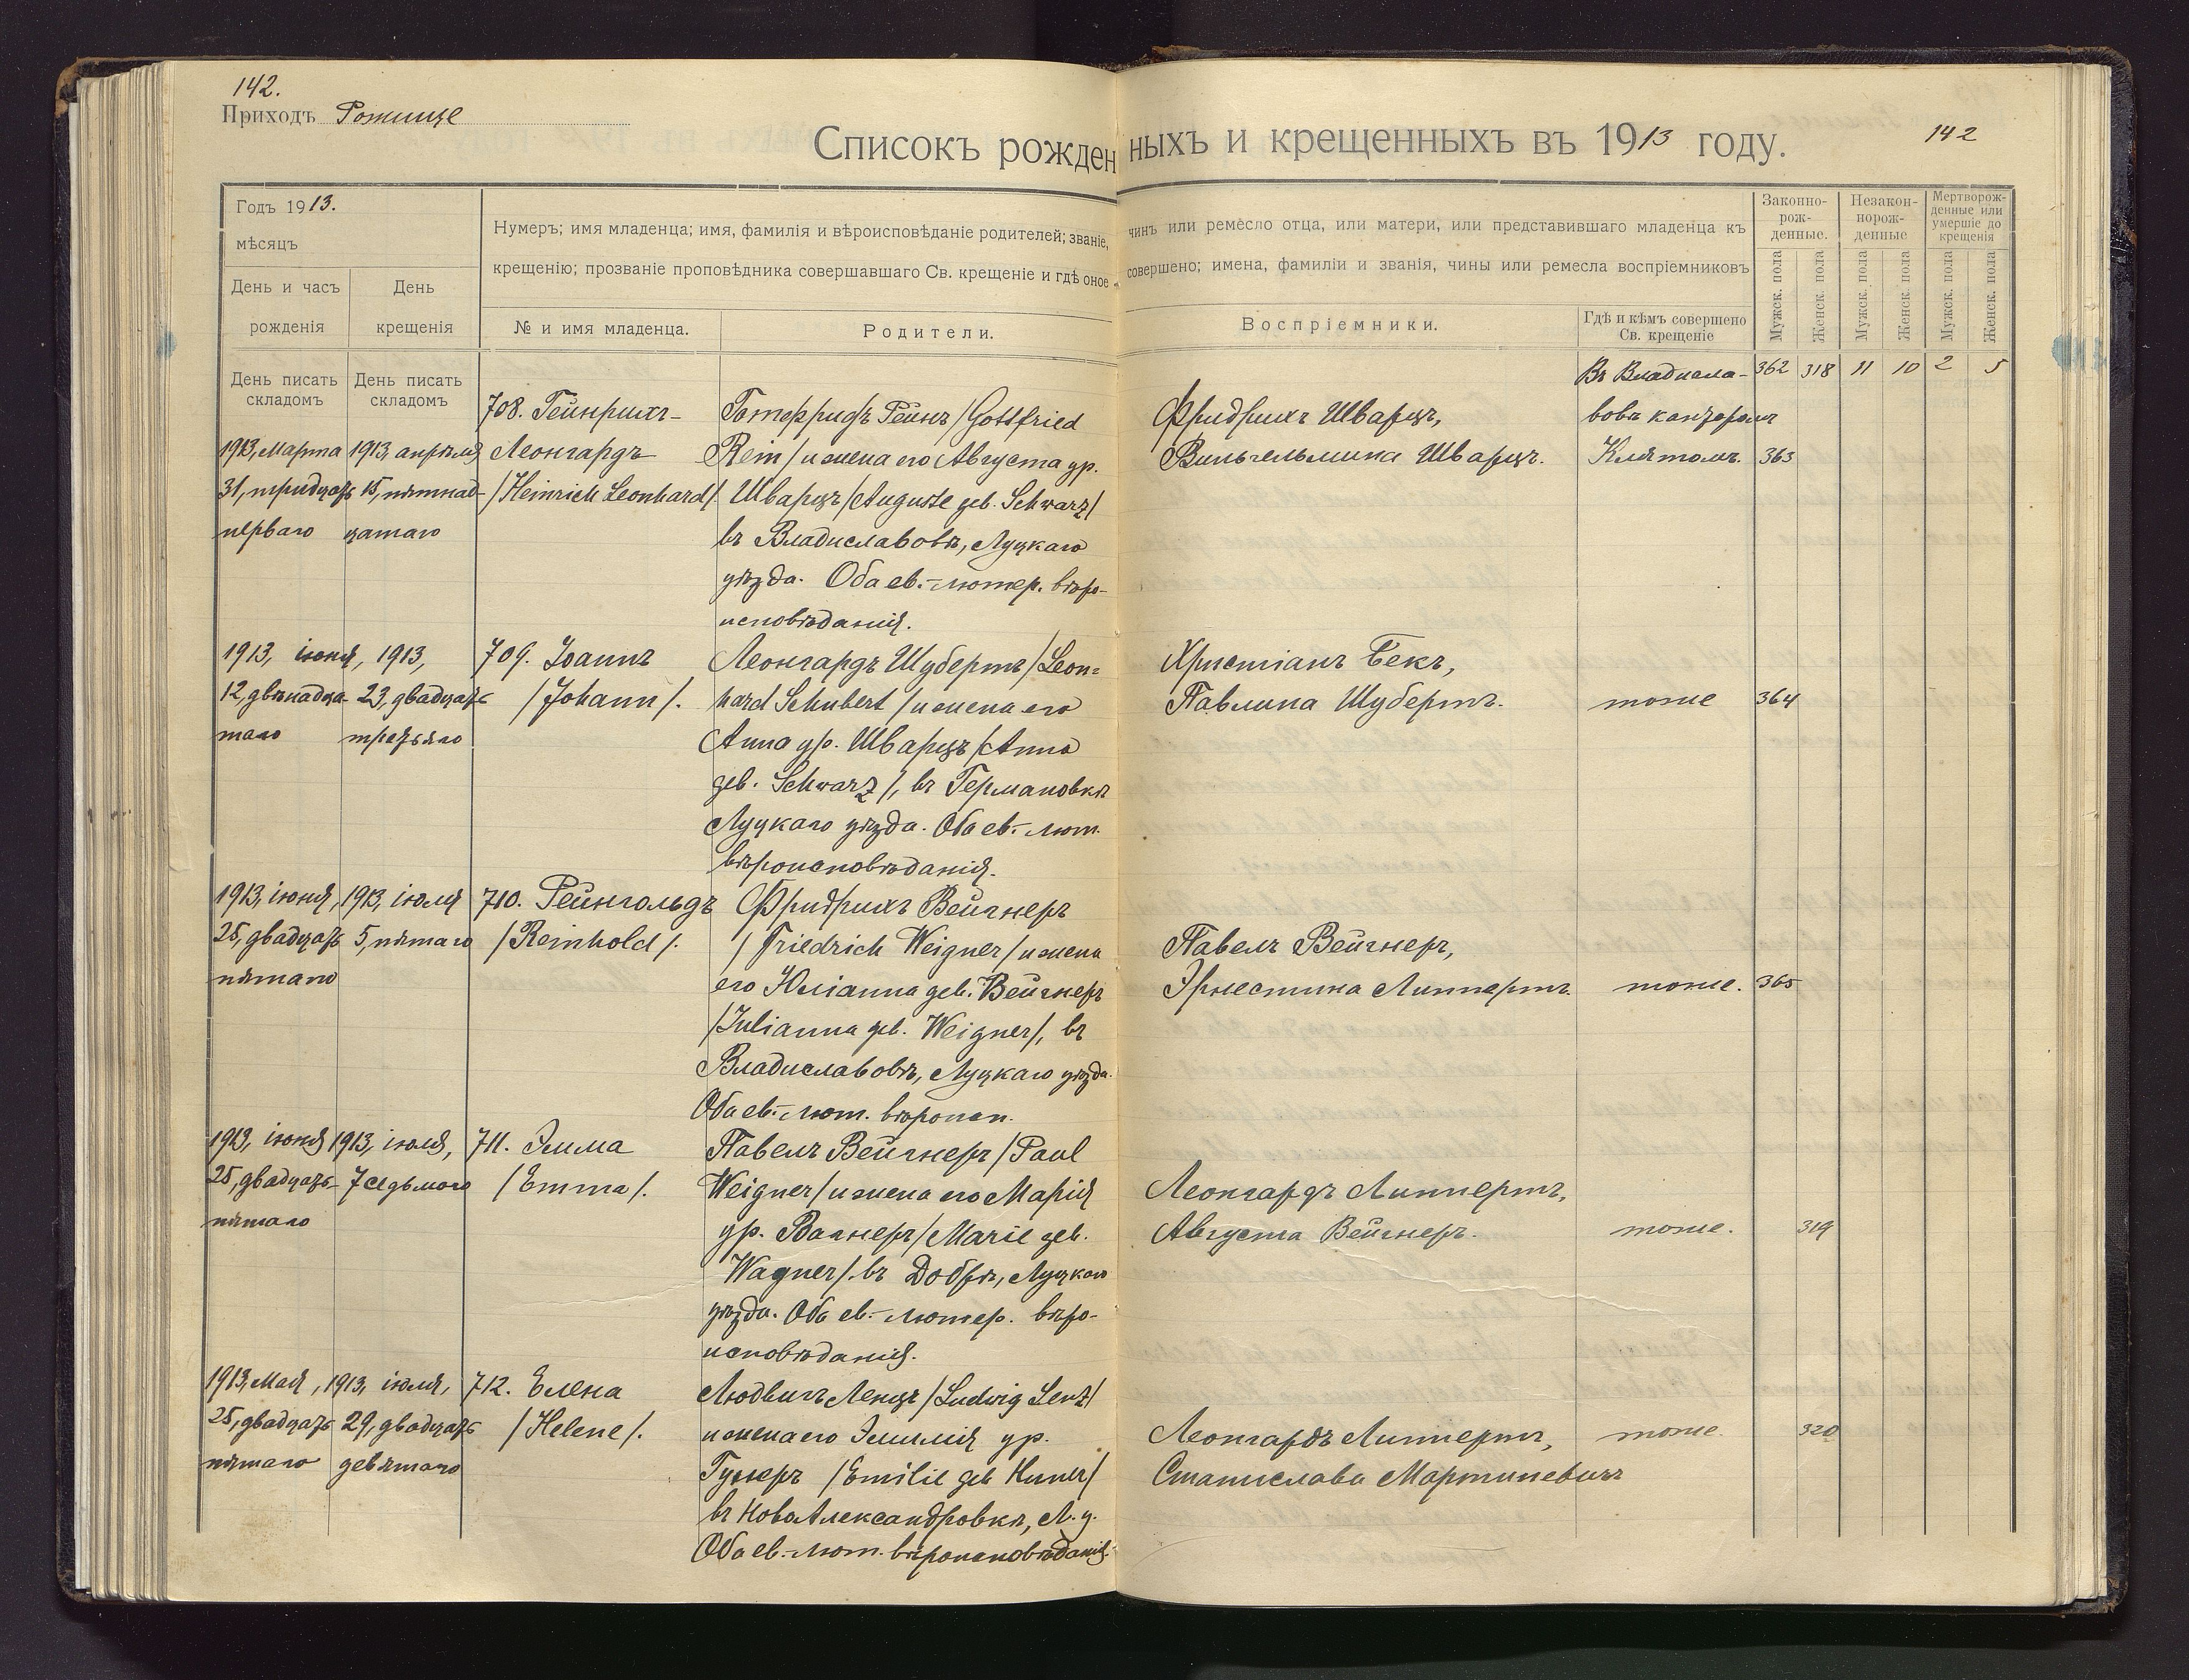 142.
Приходъ Рожище
Списокъ рожденныхъ и крещенныхъ въ 1913 году.
142
Годъ 1913.
мѣсяцъ
День и часъ
рожденія
День
крещенія
Нумеръ; имя младенца; имя, фамилія и вѣроисповѣданіе родителей; званіе, чинъ или ремесло отца, или матери, или представившаго младенца къ
крещенію; прозваніе проповѣдника совершавшаго Св. крещеніе и гдѣ оное совершено; имена, фамиліи и званія, чины или ремесла воспріемниковъ
№ и имя младенца.
Родители.
Воспріемники.
Гдѣ и кѣмъ совершено
Св. крещеніе
Законно-
рож-
денные.
Незакон-
норож-
денные
Мертворож-
денные или
умершіе до
крещенія
Мужск. пола
Женск. пола
Мужск. пола
Женск. пола
Мужск. пола
Женск. пола
День писать
складомъ
День писать
складомъ
362 318 11 10 2 5
1913, Марта
31, тридцать
перваго
1913, апрѣля
15, пятнад-
цатаго
708. Гейнрихъ-
Леонгардъ
/Heinrich Leonhard/.
Готфридъ Рейнъ /Gottfried
Rein/ и жена его Августа ур.
Шварцъ /Auguste geb. Schwarz/
въ Владиславовѣ, Луцкаго
уѣзда. Оба ев.-лютер. вѣро-
исповѣданія.
Фридрихъ Шварцъ,
Вильгельмина Шварцъ.
Въ Владисла-
вовѣ канторомъ
Клятомъ.
363
1913, іюня,
12, двѣнадца-
таго
1913,
23, двадцать
третьяго
709. Іоаннъ
/Johann/.
Леонгардъ Шубертъ /Leon-
hard Schubert/ и жена его
Анна ур. Шварцъ /Anna
geb. Schwarz/, въ Германовкѣ
Луцкаго уѣзда. Оба ев.-лют.
вѣроисповѣданія.
Христіанъ Бекъ,
Павлина Шубертъ.
тоже
364
1913, іюня,
25, двадцать
пятаго
1913, іюля
5, пятаго
710. Рейнгольдъ
/Reinhold/.
Фридрихъ Вейгнеръ
/Friedrich Weigner/ и жена
его Юліанна geb. Вейгнеръ
/Julianna geb. Weigner/, въ
Владиславовѣ, Луцкаго уѣзда.
Оба ев.-лют. вѣроисп.
Павелъ Вейгнеръ,
Эрнестина Липпертъ.
тоже.
365
1913, іюня
25, двадцать
пятаго
1913, іюля,
7 седьмого
711. Эмма
/Emma/.
Павелъ Вейгнеръ /Paul
Weigner/ и жена его Марія
ур. Вагнеръ /Marie geb.
Wagner/. въ Добрѣ, Луцкаго
уѣзда. Оба ев.-лютер. вѣро-
исповѣданія.
Леонгардъ Липпертъ,
Августа Вейгнеръ.
тоже.
319
1913, Мая,
25, двадцать
пятаго
1913, іюля,
29, двадцать
девятаго
712. Елена
/Helene/.
Людвигъ Ленцъ /Ludwig Lenz/
и жена его Эмилія ур.
/Emilie geb.
въ НовоАлександровкѣ, Л. у.
Оба ев.-лют. вѣроисповѣданія.
Леонгардъ Липпертъ,
Станислава Мартиневичъ
тоже.
320